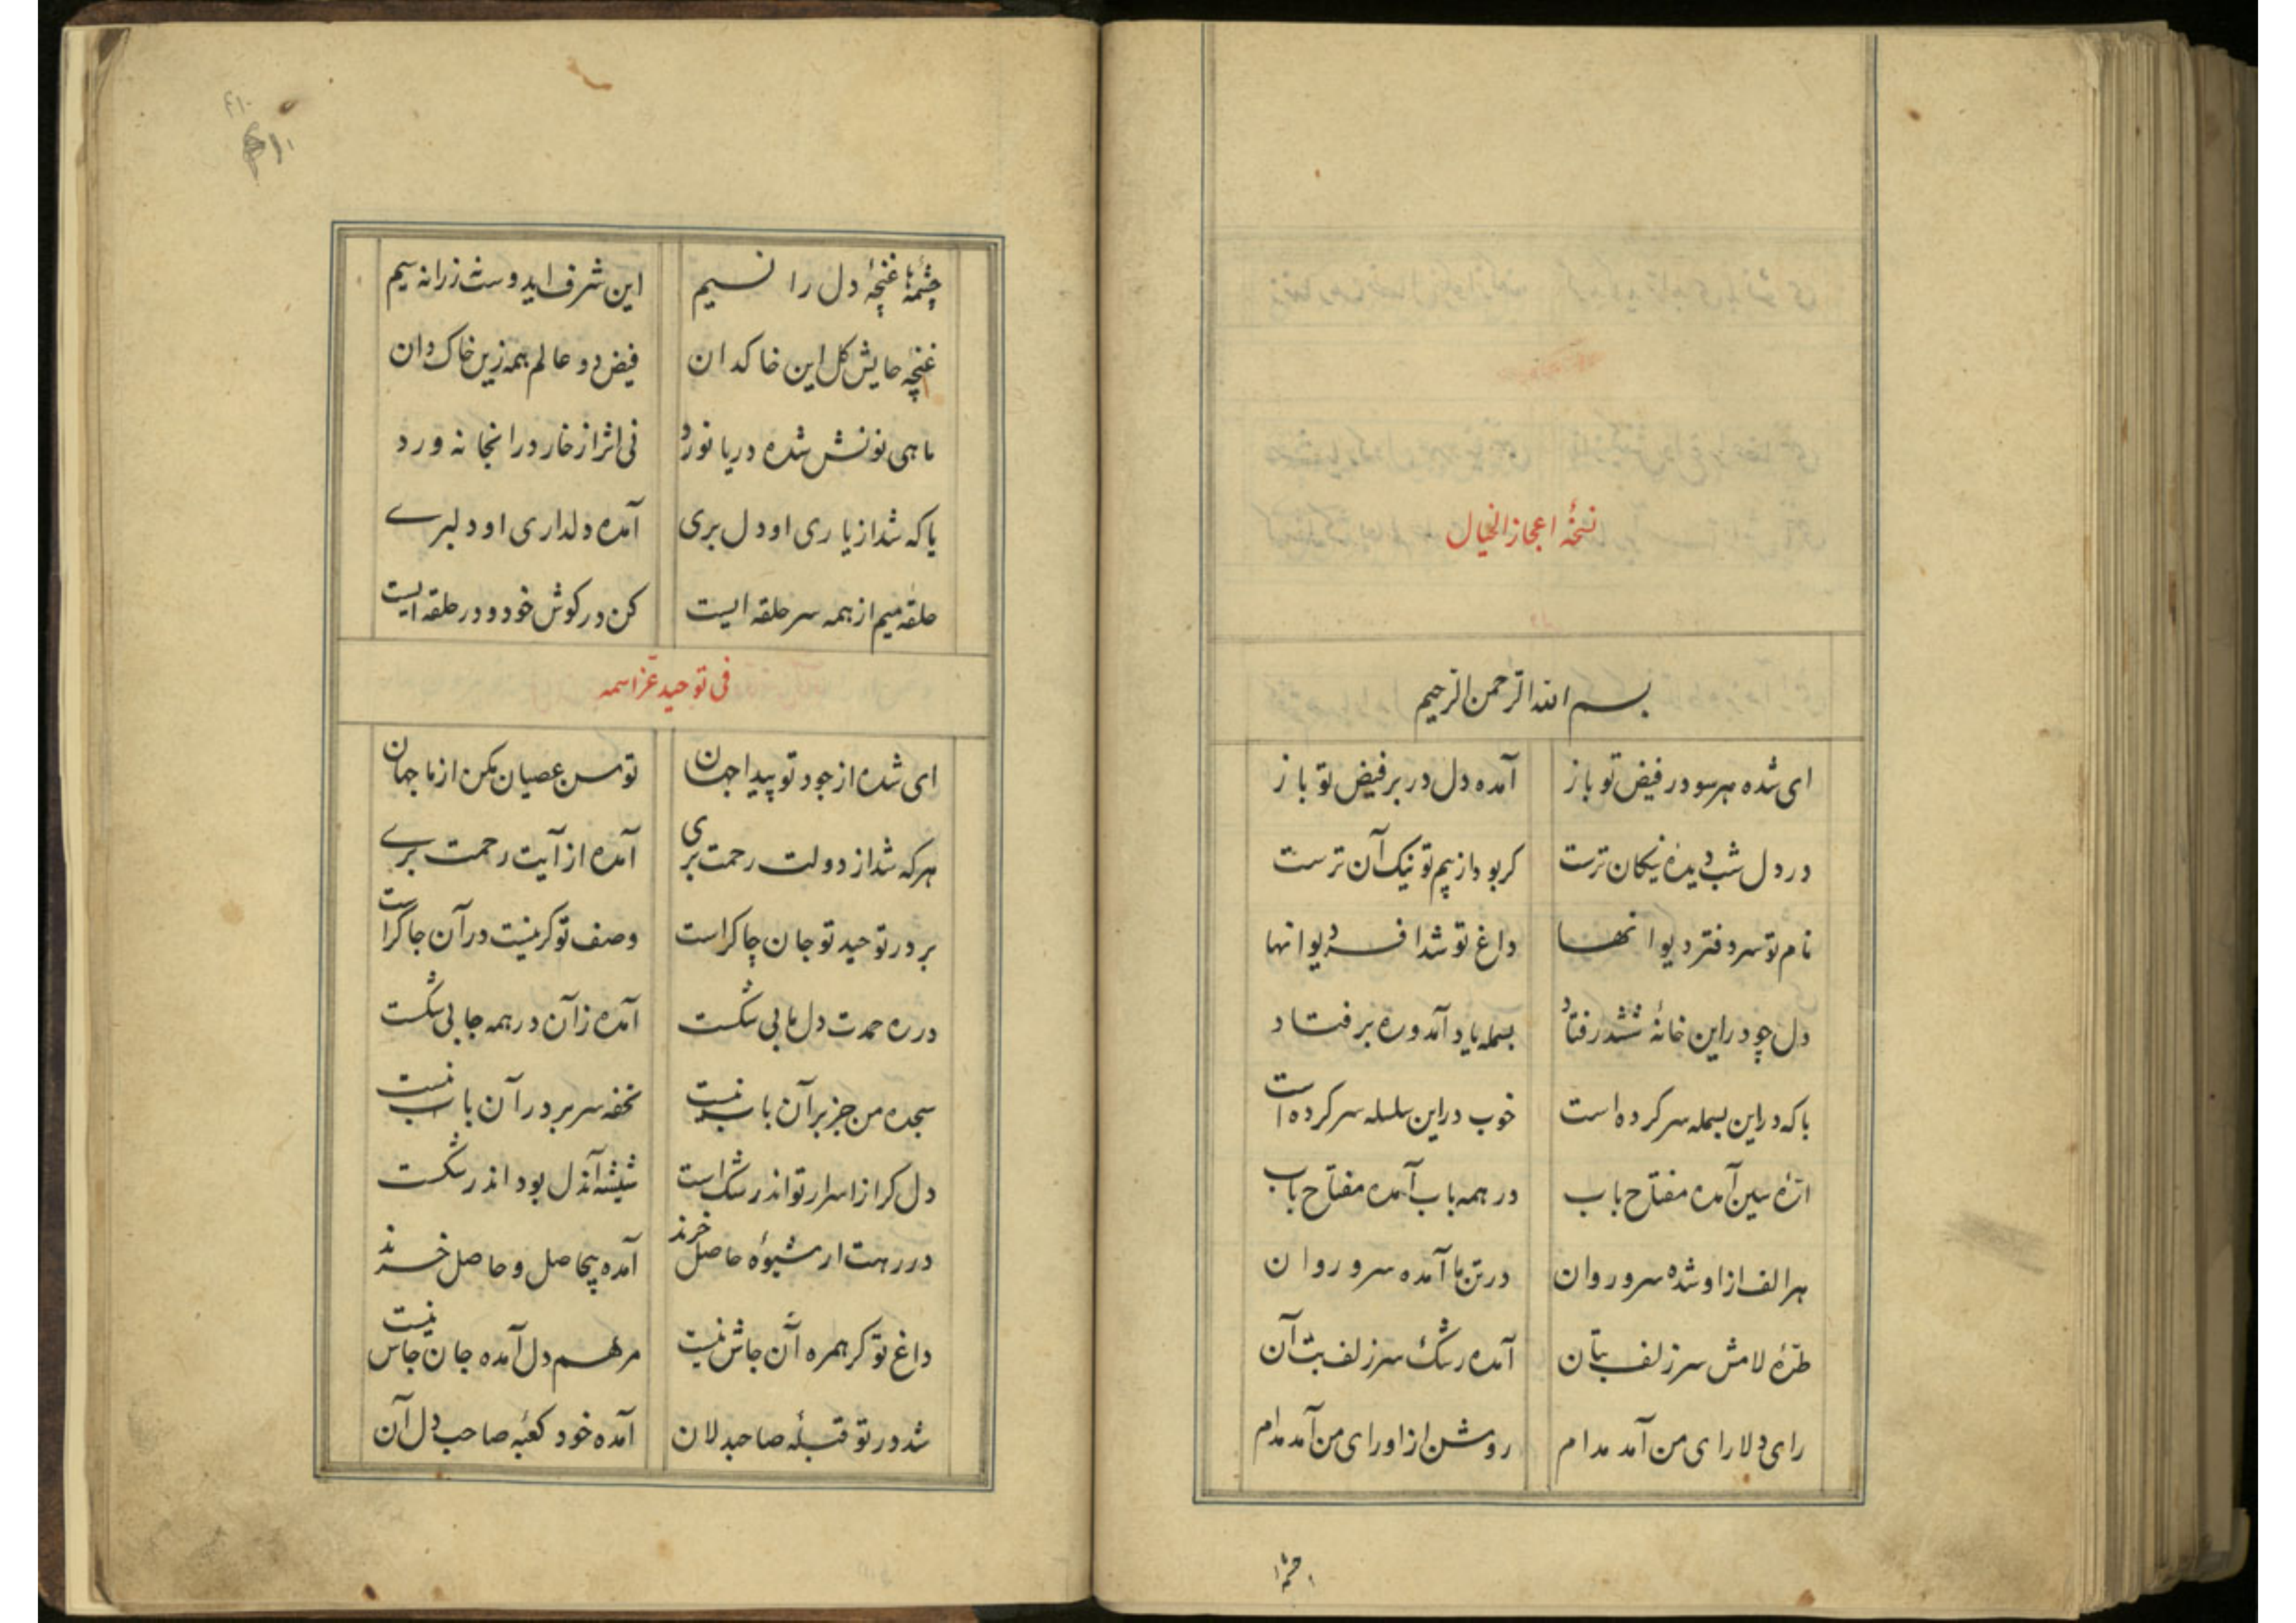 نسخهٔ اعجاز الخیال
بسم الله الرحمن الرحیم
ای شده هر سو در فیض تو باز آمده دل در بر فیض تو باز
در دل شب دیدهٔ نیکان ترست کر بود از بیم تو نیک آن ترست
نام تو سر دفتر دیوانها داغ تو شد افسر دیوانها
دل چو در این خانهٔ ششدر فتاد بسمله یاد آمد و ره بر فتاد
با که در این بسمله سر کرده است خوب در این سلسله سر کرده است
ارهٔ سین آمده مفتاح باب در همه باب آمده مفتاح باب
هر الف از او شده سرو روان در تن ما آمده سرو روان
طرهٔ لامش سر زلف بتان آمده رشک سر زلف بت آن
رای دلارای من آمد مدام روشن از او رای من آمد مدام
چشمهٔ
چشمهٔ ها غنچهٔ دل را نسیم این شرف اید وست زرانه سیم
غنچهٔ حایش کل این خاکدان فیض دو عالم همه زین خاک دان
ماهی نونش شده دریا نورد نی اثر از خار در انجا نه ورد
یا که شد از یاری او دل بری آمده دلداری او دلبرے
حلقهٔ میم از همه سر حلقه ایست کن در کوش خود و در حلقه ایست
فی توحید عزاسمه
ای شده از جود تو پیدا جهان توسن عصیان مکن از ما جهان
هر که شد از دولت رحمت بری آمده از آیت رحمت برے
بر در توحید تو جان چاکر است وصف تو کر نیست در آن جا کراست
در ره حمدت دل ما بی شکست آمده زآن در همه جا بی شکست
سجده من جز بر آن باب نیست تحفه سر بر در آن باب نیست
دل کر از اسرار تو اندر شک است شیشه آندل بود اندر شکست
در رهت ار شیوهٔ حاصل خرند آمده بیحاصل و حاصل خرند
داغ تو کر همره آن جاش نیست مرهم دل آمده جان جاس نیست
شد در تو قبلهٔ صاحبدلان آمده خود کعبه صاحب دل آن